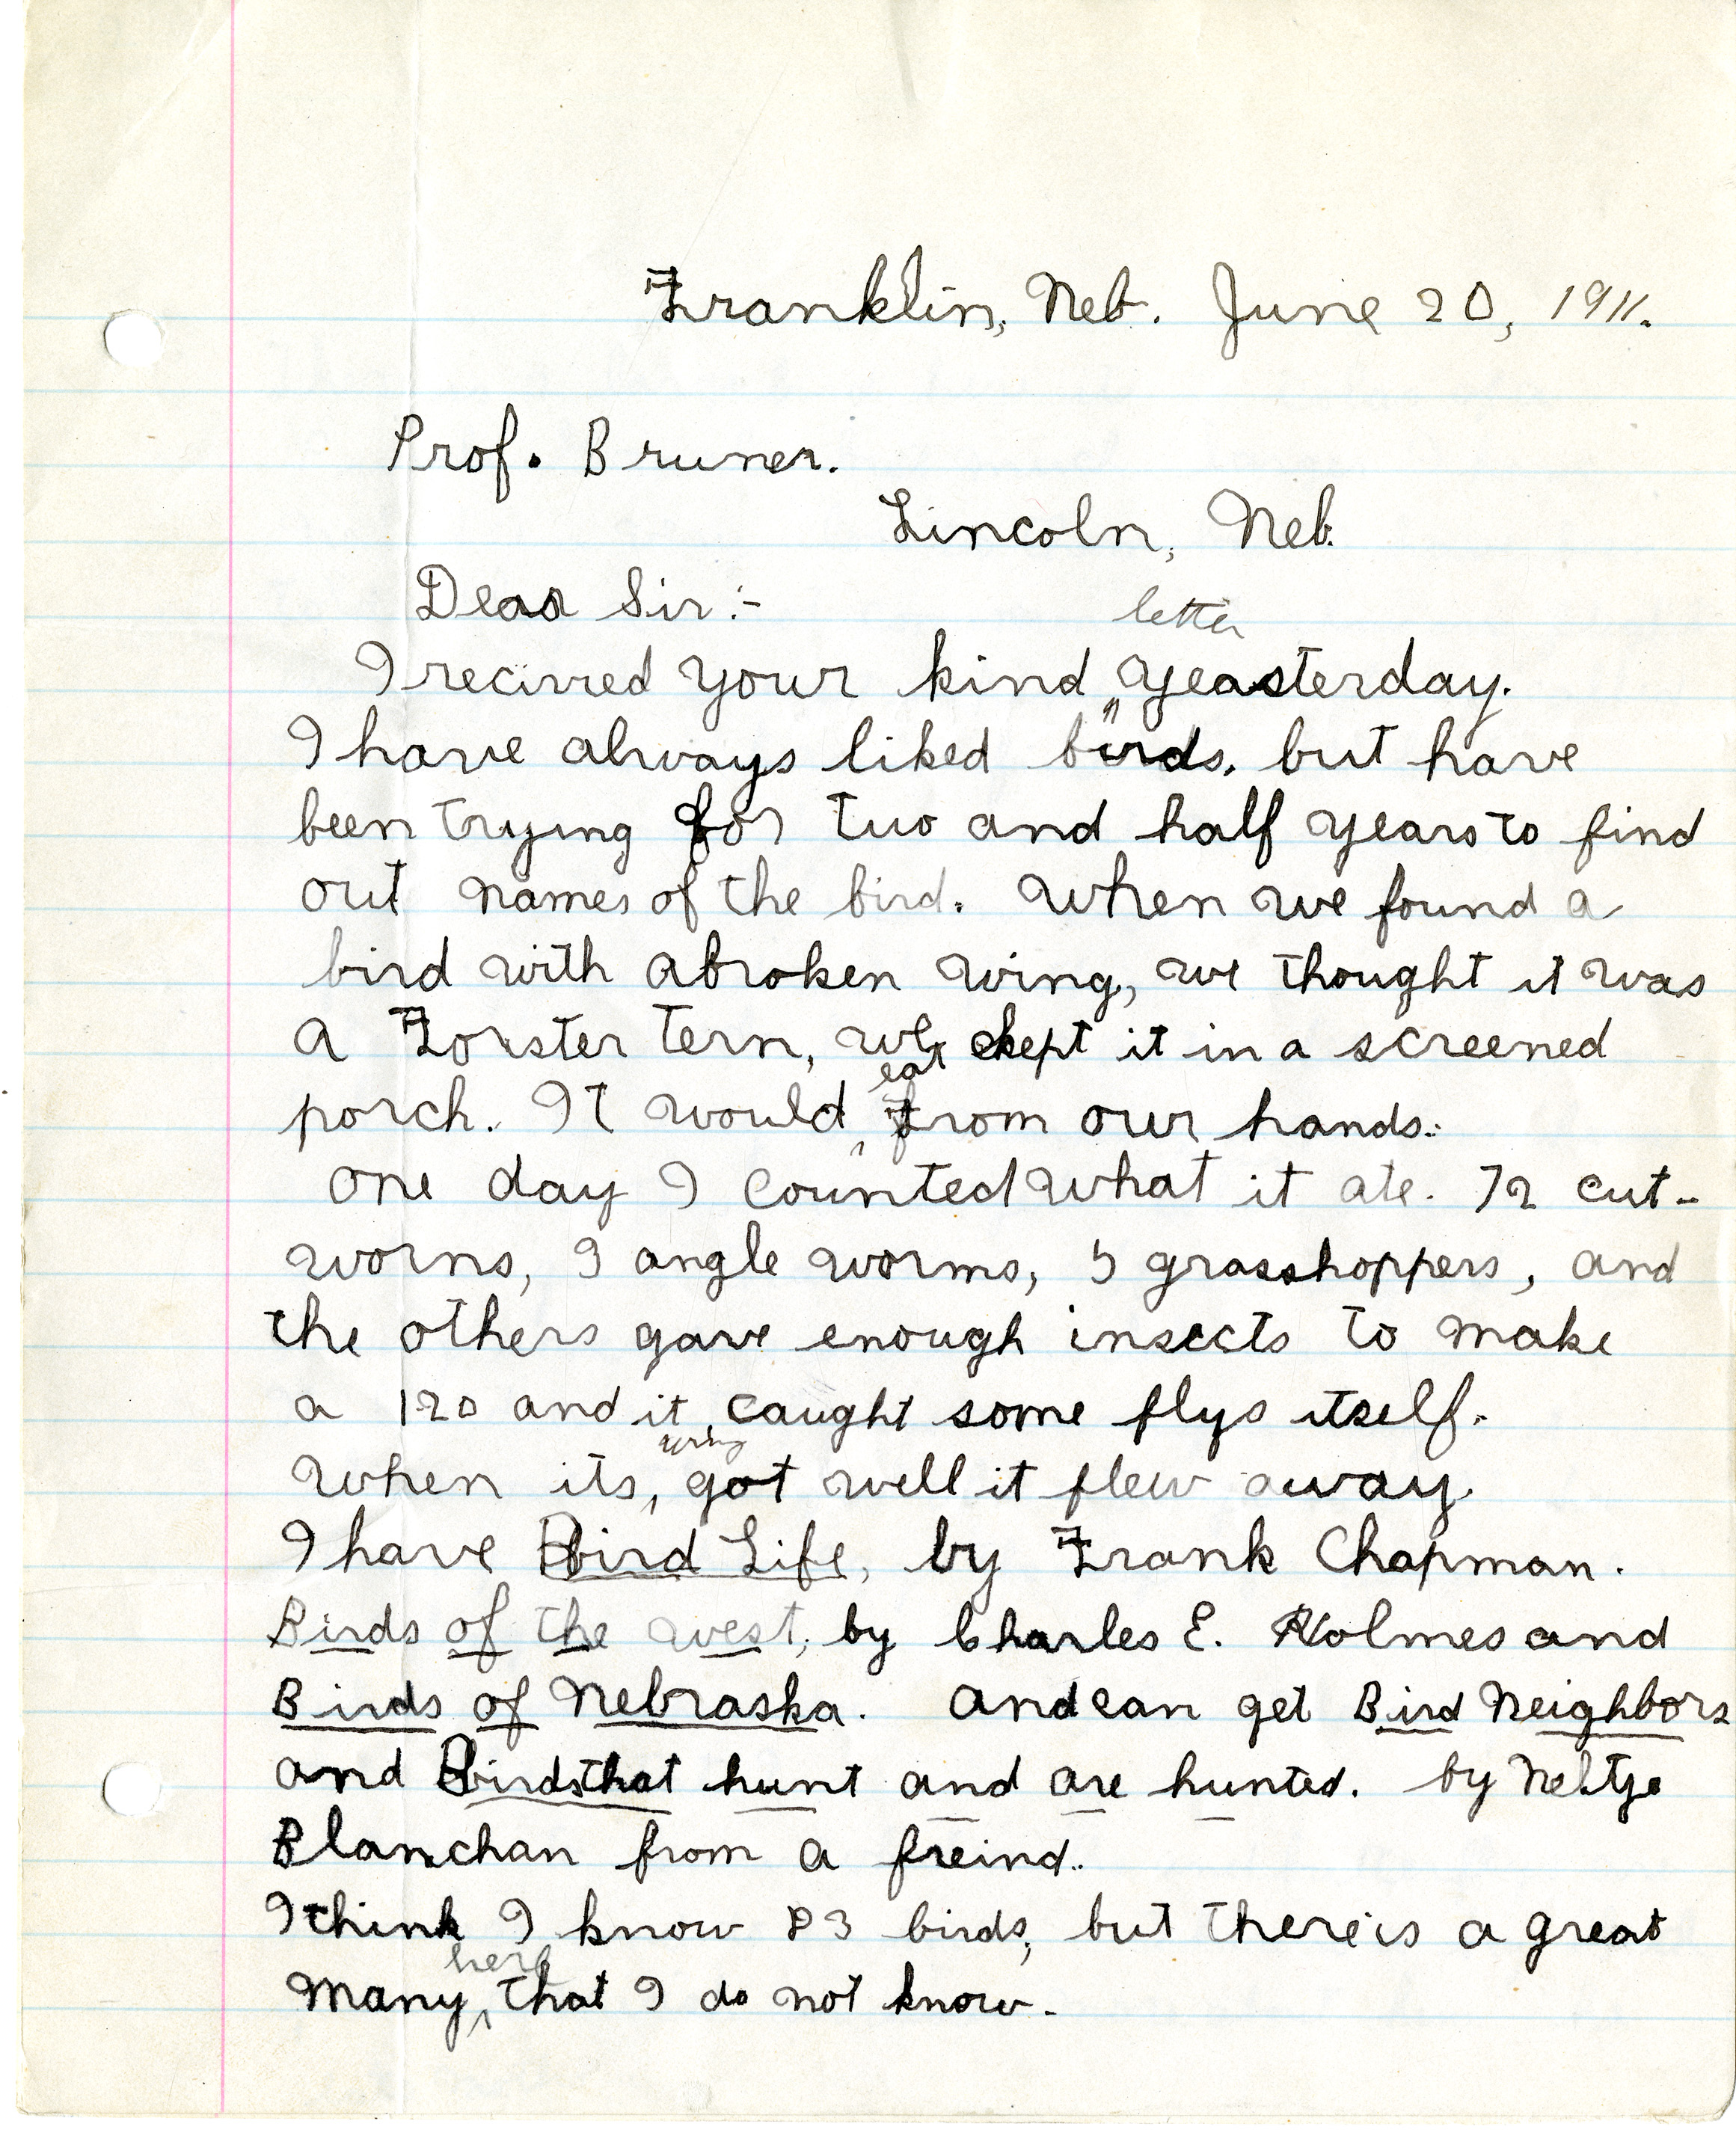 Franklin, Neb. June 20, 1911.
Prof. Bruner.
Lincoln, Neb.
Dear Sir:-
I recived your kind letter yeasterday.
I have always liked birds, but have
been trying for two and half years to find
out names of the bird. When we found a
bird with a broken wing, we thought it was
a Forster tern, we kept it in a screened
porch. It would eat from our hands.
One day I counted what it ate. 72 cut-
worns, 9 angle worms, 5 grasshoppers, and
the others gave enough insects to make
a 120 and it caught some flys itself.
When its wing got well it flew away.
I have Bird Life, by Frank Chapman.
Birds of the west, by Charles E. Holmes and
Birds of Nebraska. And can get Bird Neighbors
and Birds that hunt and are hunted. by Neltje
Blanchan from a freind.
I think I know 83 birds, but there is a great
many here that I do not know.